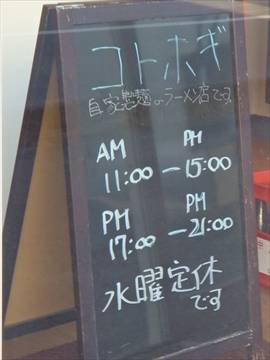 コトホギ
自家製麺のラーメン店です!
AM PM
11:00-15:00
PM PM
17:00-21:00
水曜定休
です